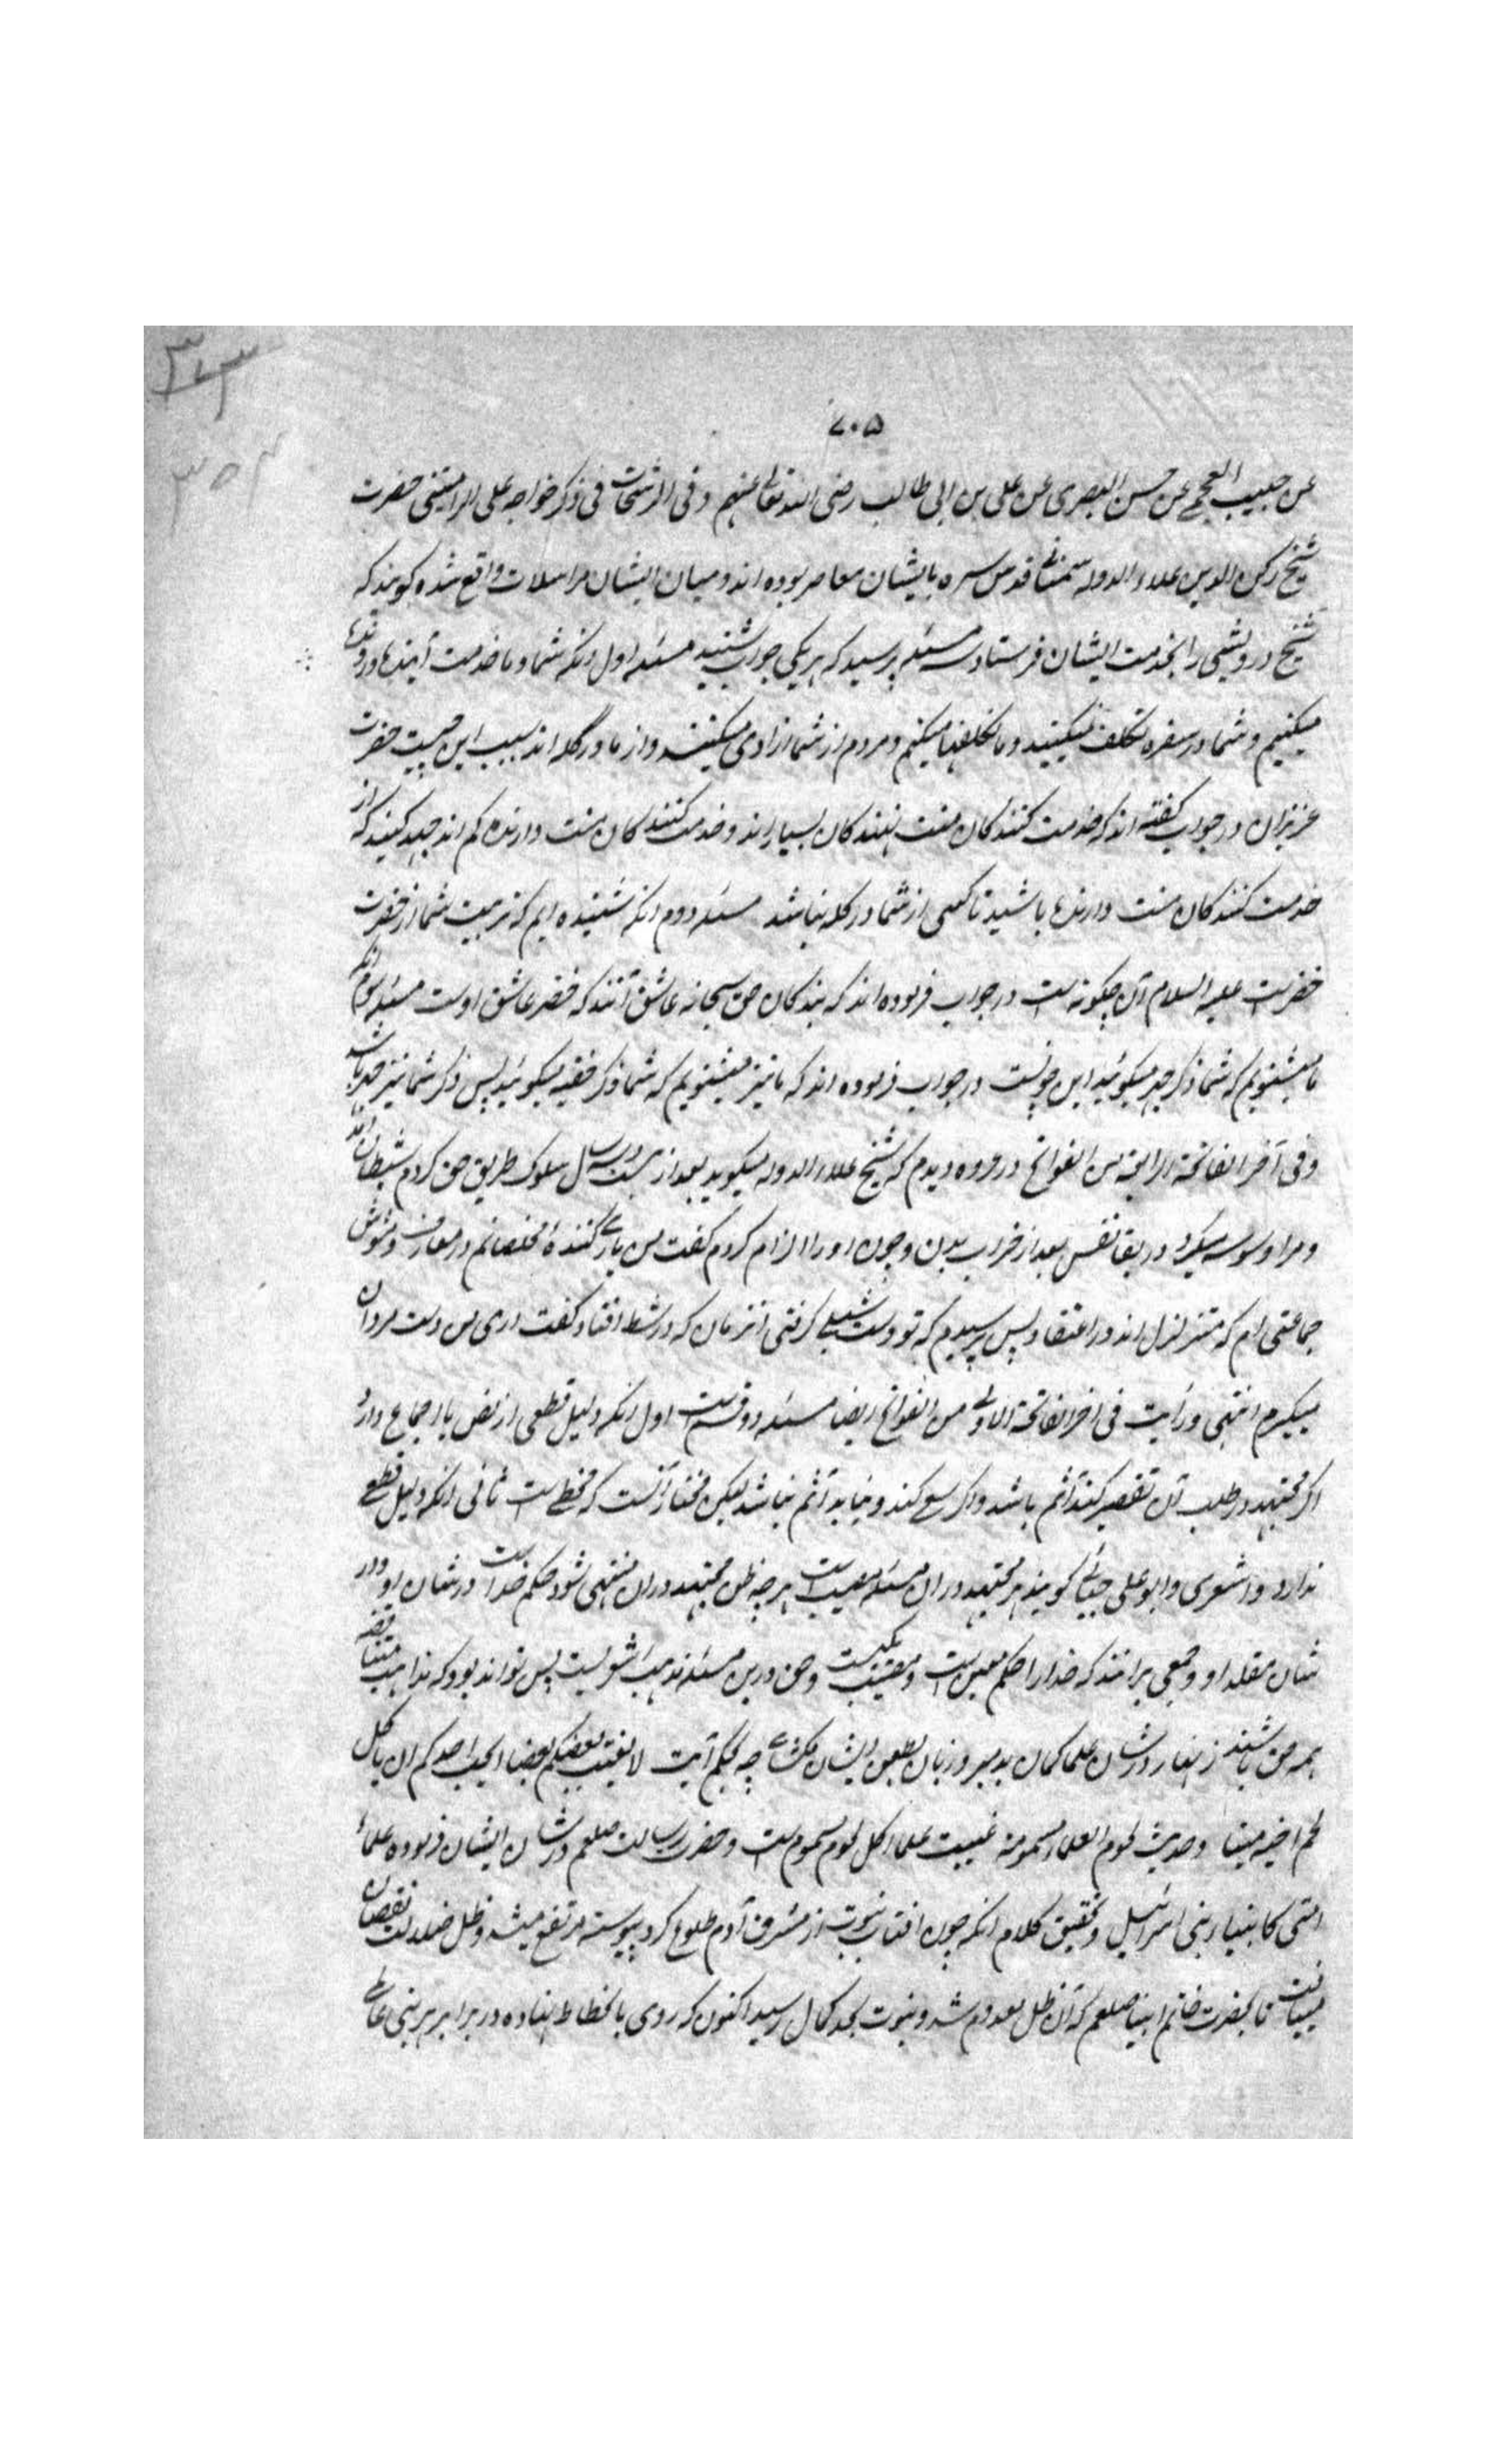 ۷۰۵
عن حبیب العجمی عن حسن البصری عن علی بن ابی طالب رضی الله تعالی عنهم وفی الرشحات فی ذکر خواجه علی الرامیتنی حضرت
شیخ رکن الدین علاء الدوله سمنانی قدس سره با یشان معاصر بوده اند ومیان ایشان مراسلات واقع شده کویند که
شیخ درویشی را بخدمت ایشان فرستاد وسه مسئله پرسید که هر یکی جواب شنید مسئله اول انکه شما و ما خدمت آینده و رونده
میکنیم و شما در سفره تکلف نمیکنید و ما تکلفها میکنیم و مردم از شما ازادی میکنند و از ما در گله اند سبب این چیست حضرت
عزیزان در جواب گفته اند که خدمت کنندکان منت نهندکان بسیار اند و خدمت کنندکان منت دارنده کم اند جهد کنید که از
خدمت کنندکان منت دارنده باشید تا کسی از شما در کله نباشد مسئله دوم انکه شنیده ایم که تربیت شما از حضرت
خضرست علیه السلام آن چکونه است در جواب فرموده اند که بندکان حق سبحانه عاشق آنند که خضر عاشق اوست مسئله سوم انکه
ما میشنویم که شما ذکر جهر میکوئید این چونست در جواب فرموده اند که ما نیز میشنویم که شما ذکر خفیه میکوئید پس ذکر شما نیز جهر باشد
وفی آخر الفاتحة الرابعة من الفواتح در عروه دیدم که شیخ علاء الدوله میکوید بعد از بیست و سه سال سلوک طریق حق کردم شیطان آمد
و مرا وسوسه میکرد در بقا نفس بعد از خراب بدن و چون او را الزام کردم گفت من یاری کننده مخلصانم در معارف و مشوش
جماعتی ام که متزلزل اند در اعتقاد پس پرسیدم که تو دست شبلی گرفتی انزمان که در شط افتاد گفت اری من دست مردان
میگیرم انتهی ورأیت فی اخر الفاتحة الاولی من الفواتح ایضا مسئله دو قسم است اول انکه دلیل قطعی از نص یا اجماع دارد
اگر مجتهد در طلب آن تقصیر کند آثم باشد و اگر سعی کند و نیابد آثم نباشد لیکن مختار آنست که مخطی است ثانی انکه دلیل قطعی
ندارد و اشعری و ابو علی جبائی گویند هر مجتهد دران مسئله مصیب است هر چه ظن مجتهد دران منتهی شود حکم خداست در شان او و در
شان مقلد او و جمعی برانند که خدا را حکم معین است و مصیب یکیست و حق درین مسئله مذهب اشعریست پس تواند بود که مذاهب متناقضه
همه حق باشند زنهار در شان علما گمان بد مبر و زبان بطعن ایشان مگشای چه بحکم آیت لا یغتب بعضکم بعضا ایحب احدکم ان یاکل
لحم اخیه میتا وحدیث لحوم العلماء مسمومة غیبت علما اکل لحوم مسموم است و حضرت رسالت صلعم در شان ایشان فرموده علماء
امتی کانبیاء بنی اسرائیل و تحقیق کلام انکه چون افتاب نبوت از مشرق آدم طلوع کرد پیوسته مرتفع میشد و ظل ضلالت نقصان
مییافت تا بحضرت خاتم انبیا صلعم که آن ظل معدوم شد و نبوت بحد کمال رسید اکنون که روی بانحطاط نهاده در برابر هر نبی عالمی